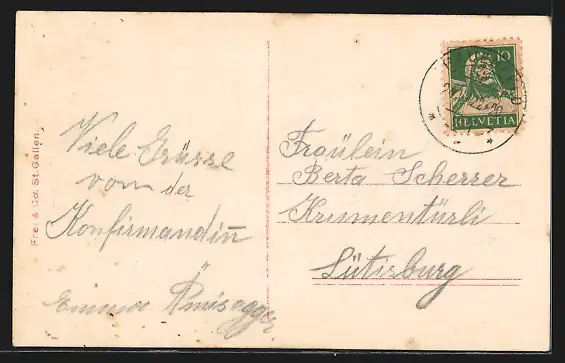 Viele Grüsse
von der
Konfirmandin
Emma
Frei & Co. St. Gallen.
10
HELVETIA
Fräulein
Berta Scherrer
Krumentürli
Lütisburg